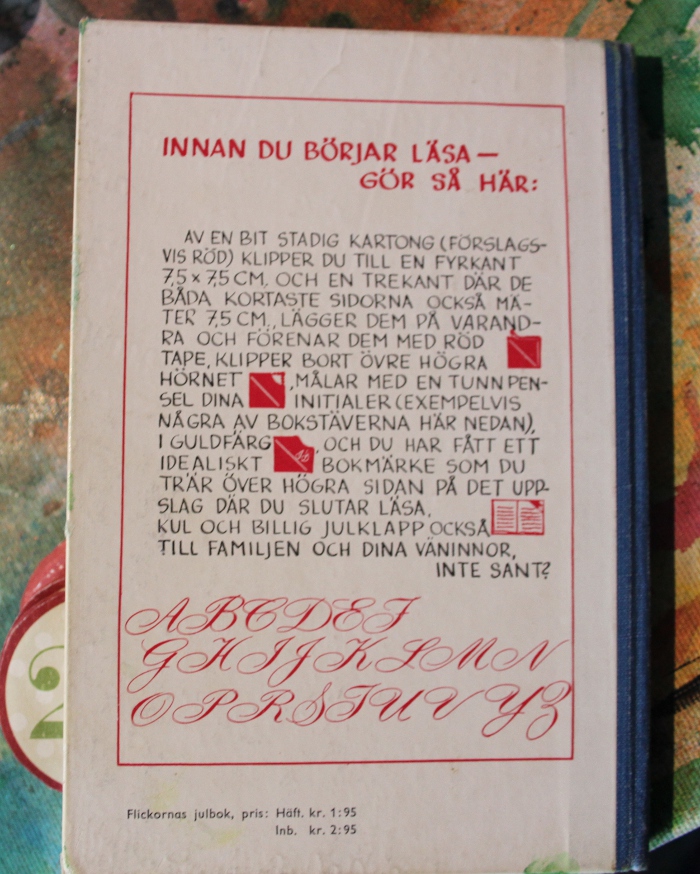 INNAN DU BÖRJAR LÄSA —
GÖR SÅ HÄR:
AV EN BIT STADIG KARTONG (FÖRSLAGS-
VIS RÖD) KLIPPER DU TILL EN FYRKANT
7,5 × 7,5 CM, OCH EN TREKANT DÄR DE
BÅDA KORTASTE SIDORNA OCKSÅ MÄ-
TER 7,5 CM., LÄGGER DEM PÅ VARAND-
RA OCH FÖRENAR DEM MED RÖD
TAPE, KLIPPER BORT ÖVRE HÖGRA
HÖRNET , MÅLAR MED EN TUNN PEN-
SEL DINA INITIALER (EXEMPELVIS
NÅGRA AV BOKSTÄVERNA HÄR NEDAN),
I GULDFÄRG , OCH DU HAR FÅTT ETT
IDEALISKT BOKMÄRKE SOM DU
TRÄR ÖVER HÖGRA SIDAN PÅ DET UPP-
SLAG DÄR DU SLUTAR LÄSA.
KUL OCH BILLIG JULKLAPP OCKSÅ
TILL FAMILJEN OCH DINA VÄNINNOR,
INTE SANT?
ABCDEF
GHIJKLMN
OPRSTUVYZ
Flickornas julbok, pris: Häft. kr. 1:95
Inb. kr. 2:95
2